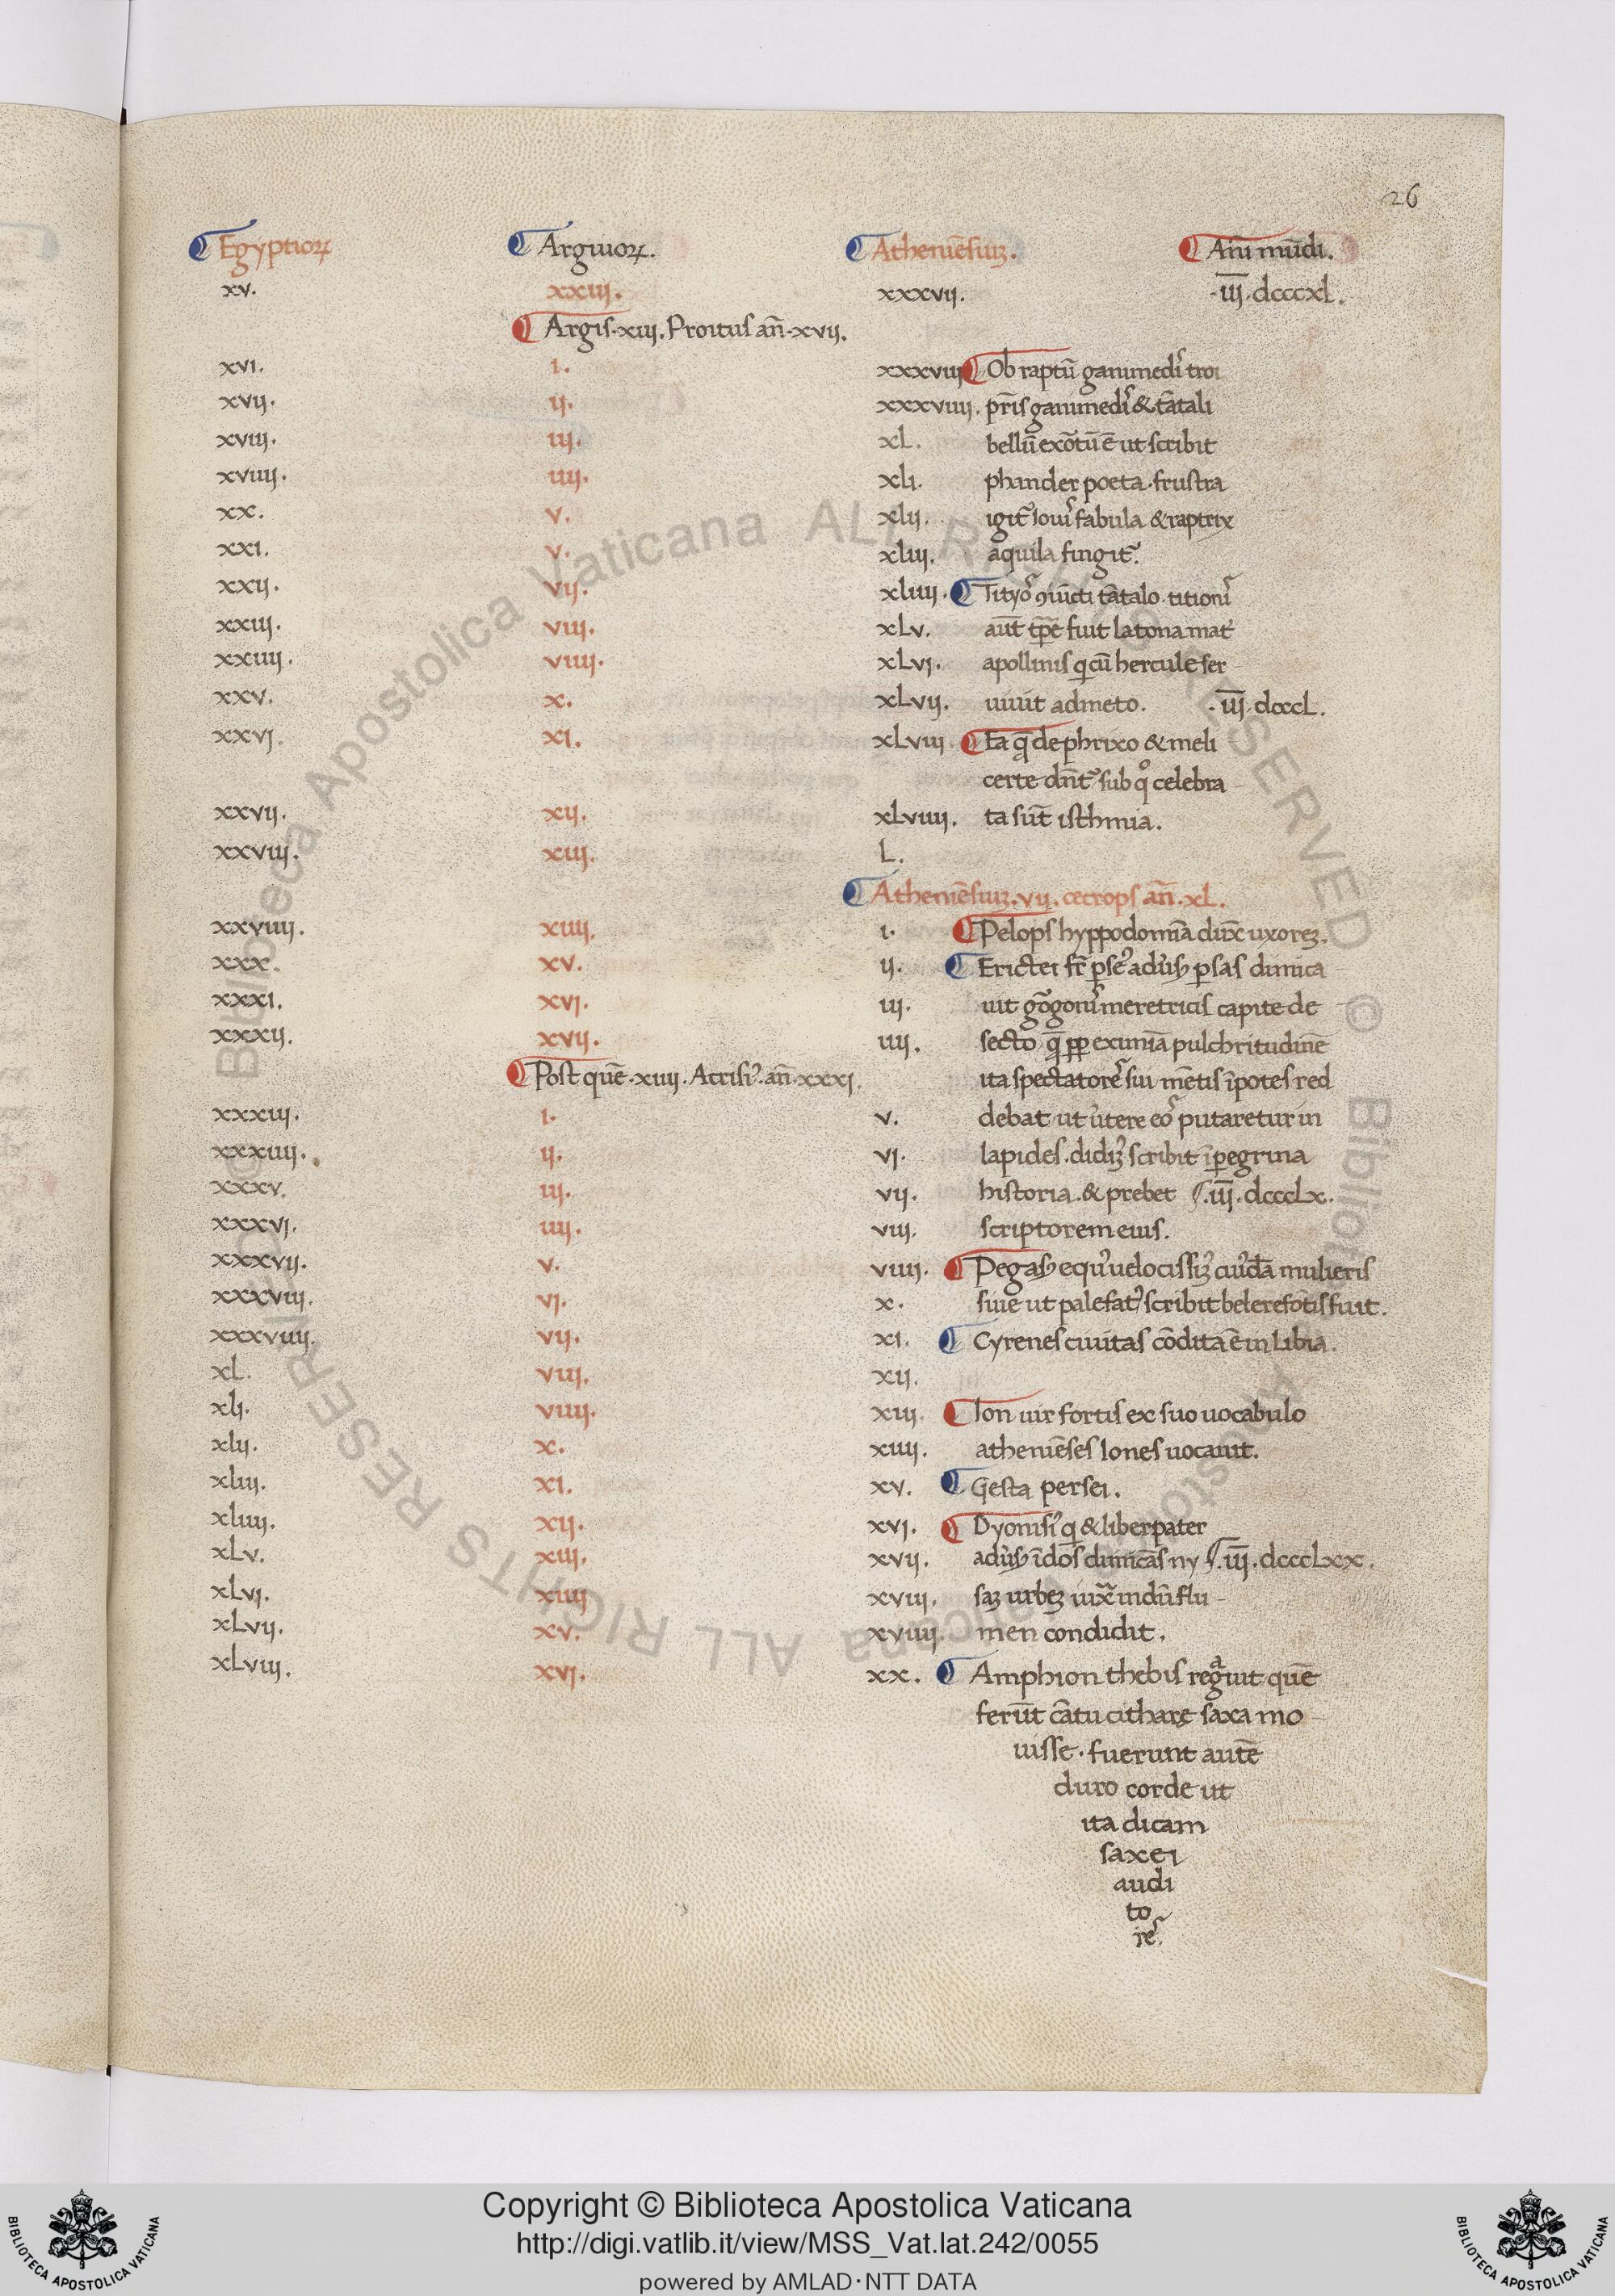 26
Egyptioꝝ Argiuoꝝ. Atheniẽsiuꝫ. Añi mũdi.
xv. xxiij. xxxvij. .iij. dcccxl.
Argis. xiij. Proitus añ. xvij.
xvi. i. xxxviij Ob raptũ ganimedis troi
xvij. ij. xxxviiij. pr̃is ganimedis & tãtali
xviij. iij. xl. bellũ exõtũ ẽ ut scribit
xviiij. iiij. xli. phander poeta. frustra
xx. v. xlij. igit̃ iouis fabula & raptrix
xxi. v. xliij. aquila fingit̃.
xxij. vij. xliiij. tãtalo.
xxiij. viij. xlv. aut̃ tp̃e fuit latona mat̃
xxiiij. viiij. xlvi. apollinis q cũ hercule ser
xxv. x. xlvij. uiuit admeto. .iij. dcccl.
xxvj. xi. xlviij. Ea q̃ de phrixo & meli
certe dñt̃ sub qͦ celebra
xxvij. xij. xlviiij. ta sũt isthmia.
xxviij. xiij. L.
Atheniẽsiuꝫ. vij. cecrops añ. xl.
xxviiij. xiiij. i. Pelops hyppodomiã dux̃ uxoreꝫ.
xxx. xv. ij. Erictei persas dimica
xxxi. xvi. iij. uit meretricis capite de
xxxij. xvij. iiij. secto q̃ ꝓp eximiã pulchritudinẽ
Post quẽ. xiiij. Acrisiꝰ. añ. xxxj.
ita spectatores sui mẽtis ĩpotes red
xxxiij. i. v. debat ut putaretur in
xxxiiij. ij. vj. lapides. didiꝫ scribit ĩ peregrina
xxxv. iij. vij. historia. & prebet .iij. dccclx.
xxxvj. iiij. viij. scriptorem eius.
xxxvij. v. viiij. Pegasꝰ equꝰ uelocissiꝫꝰ cuiꝰdã mulieris
xxxviij. vj. x. siue ut palefatꝰ scribit belerefõtis fuit.
xxxviiij. vij. xi. Cyrenes ciuitas cõdita ẽ in Libia.
xl. viij. xij.
xlj. viiij. xiij. Ion uir fortis ex suo uocabulo
xlij. x. xiiij. atheniẽses Iones uocauit.
xliij. xi. xv. Gesta persei.
xliiij. xij. xvj. Dyonisiꝰ q & liberpater
xlv. xiij. xvij. adũsꝰ ĩdos dimicãs ny .iij. dccclxx.
xlvj. xiiij xviij. saꝫ urbeꝫ iuxta indũ flu
xlvij. xv. xviiij. men condidit.
xlviij. xvj. xx. Amphion thebis regᵃuit quẽ
ferũt cãtu citharę saxa mo
uisse. fuerunt autẽ
duro corde ut
ita dicam
saxei
audi
to
res.
© Biblioteca Apostolica Vaticana ALL RIGHTS RESERVED © Biblioteca Apostolica Vaticana ALL RIGHTS RESERVED
BIBLIOTECA APOSTOLICA VATICANA
Copyright © Biblioteca Apostolica Vaticana
http://digi.vatlib.it/view/MSS_Vat.lat.242/0055
powered by AMLAD·NTT DATA
BIBLIOTECA APOSTOLICA VATICANA